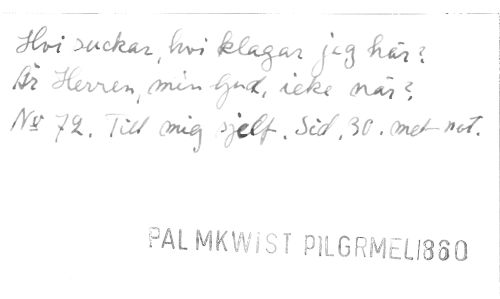 Hvi suckar, hvi klagar jag här?
Är Herren, min Gud, icke när?
No 72. Till mig sjelf. Sid. 30. met not.
PALMKWIST PILGRMEL1860